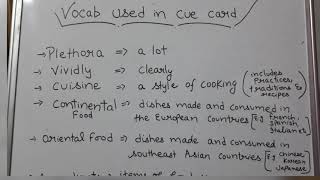 Vocab used in cue card
→ Plethora => a lot
→ Vividly => clearly
→ Cuisine => a style of cooking (includes practices, traditions & recipes)
→ Continental Food => dishes made and consumed in
the European countries [e.g. French, Spanish, Italian etc]
→ Oriental Food => dishes made and consumed in
southeast Asian countries [e.g. Chinese, Korean, Japanese]